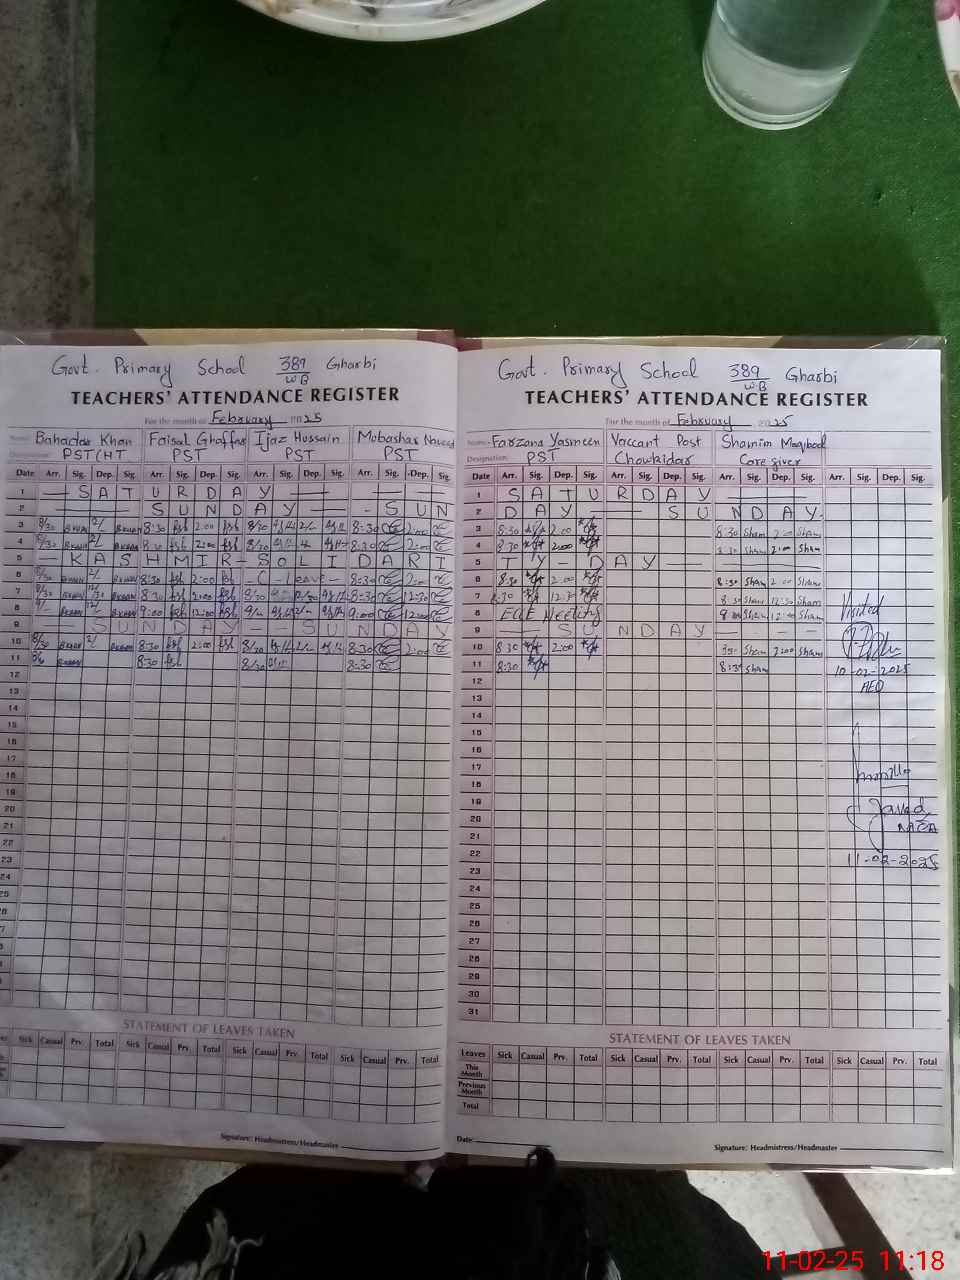 Govt. Primary School 389/WB Gharbi
TEACHERS' ATTENDANCE REGISTER
For the month of February 2025
Name:- Bahadar Khan Faisal Ghaffar Ijaz Hussain Mobashar Naveed
Designation: PST/HT PST PST PST
Date Arr. Sig. Dep. Sig. Arr. Sig. Dep. Sig. Arr. Sig. Dep. Sig. Arr. Sig. Dep. Sig.
1 SATURDAY
2 SUNDAY - SUN
3 8/30 BKHAN 2/ BKHAN 8:30 2:00 8/30 2/- 8:30 2:00
4 8/30 BKHAN 2/ BKHAN 8:30 2:00 8/30 8:30 2:00
5 KASHMIR-SOLIDARI
6 8/30 BKHAN 2/ BKHAN 8:30 2:00 - C - Leave - 8:30 2:00
7 8/30 BKHAN 12/30 BKHAN 8:30 2:00 8/30 12/30 8:30 12:30
8 9/- BKHAN 12/ BKHAN 9:00 12:00 9/- 12/- 9:00 12:00
9 SUNDAY - SUNDAY
10 8/30 BKHAN 2/ BKHAN 8:30 2:00 8/30 2/- 8:30 2:00
11 BKHAN 8:30 8/30 8:30
12
13
14
15
16
17
18
19
20
21
22
23
24
25
26
27
STATEMENT OF LEAVES TAKEN
Sick Casual Prv. Total Sick Casual Prv. Total Sick Casual Prv. Total Sick Casual Prv. Total
Signature: Headmistress/Headmaster
Govt. Primary School 389/WB Gharbi
TEACHERS' ATTENDANCE REGISTER
For the month of February 2025
Name:- Farzana Yasmeen Vaccant Post Shamim Maqbool
Designation: PST Chowkidar Care giver
Date Arr. Sig. Dep. Sig. Arr. Sig. Dep. Sig. Arr. Sig. Dep. Sig. Arr. Sig. Dep. Sig.
1 SATURDAY
2 DAY SUNDAY
3 8:30 2:00 8:30 Sham 2:00 Sham
4 8:30 2:00 8:30 Sham 2:00 Sham
5 TY-DAY
6 8:30 2:00 8:30 Sham 2:00 Sham
7 8:30 12:30 8:30 Sham 12:30 Sham
8 ECE Meeting Sham 12:00 Sham
9 SUNDAY
10 8:30 2:00 Sham 2:00 Sham
11 8:30 8:30 Sham
Visited
10-02-2025
AEO
12
13
14
15
16
17
18
19
20
21
22
23
24
25
26
27
28
29
30
31
Javed
MEA
11-02-2025
STATEMENT OF LEAVES TAKEN
Leaves Sick Casual Prv. Total Sick Casual Prv. Total Sick Casual Prv. Total Sick Casual Prv. Total
This Month
Previous Month
Total
Date:
Signature: Headmistress/Headmaster
11-02-25 11:18